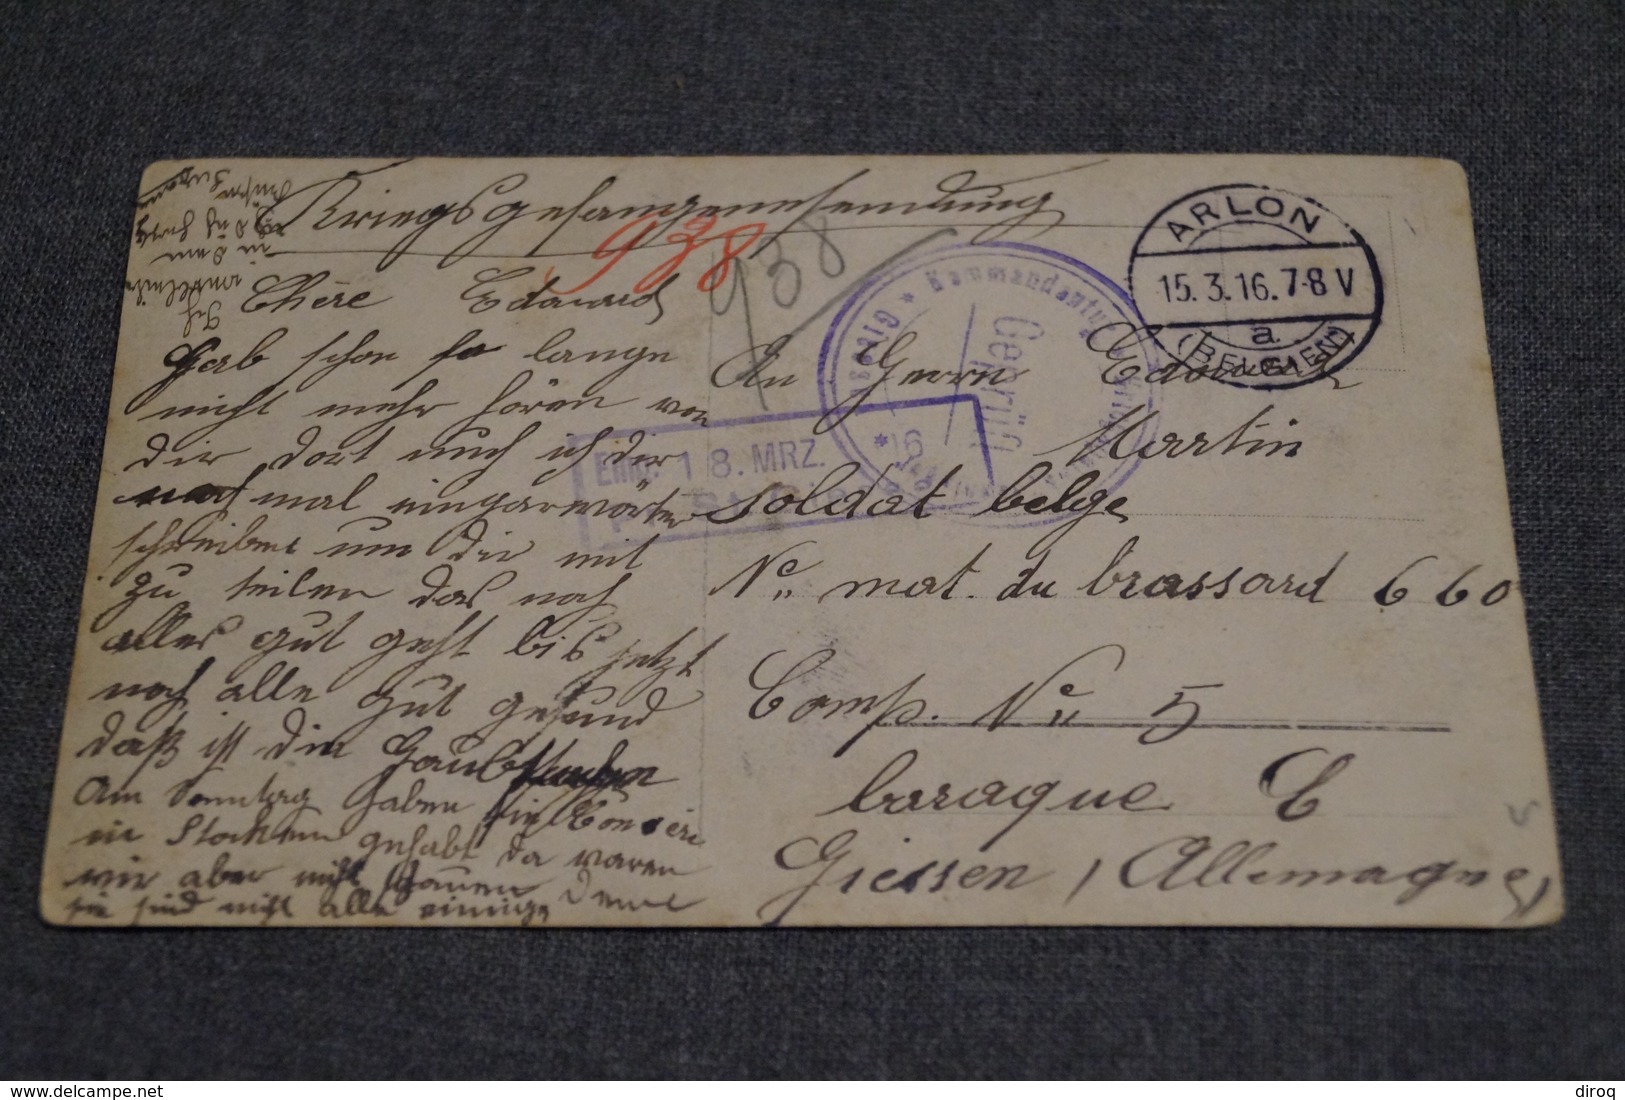 Kriegsgefangenensendung
938
938
ARLON
15.3.16.7-8 V
a
(BELGIEN)
Kommandantur
Geprüft
Giessen
18. MRZ.
Chère Eduard
Hab schon so lange
nicht mehr hören von
dir dort nuch ich dir
noch mal
schreiben um dir mit
zu teilen das noch
alles gut geht bis jetzt
noch alle gut gesund
daß ist die
Am Sonntag haben sie Concert
in Stockem gehabt da waren
wir aber nicht denn
sie sind nicht alle einige
Ich
in dem
An Herrn Eduard
Martin
soldat belge
No mat. du brassard 660
Comp. No 5
baraque C
Giessen, Allemagne,
diroq